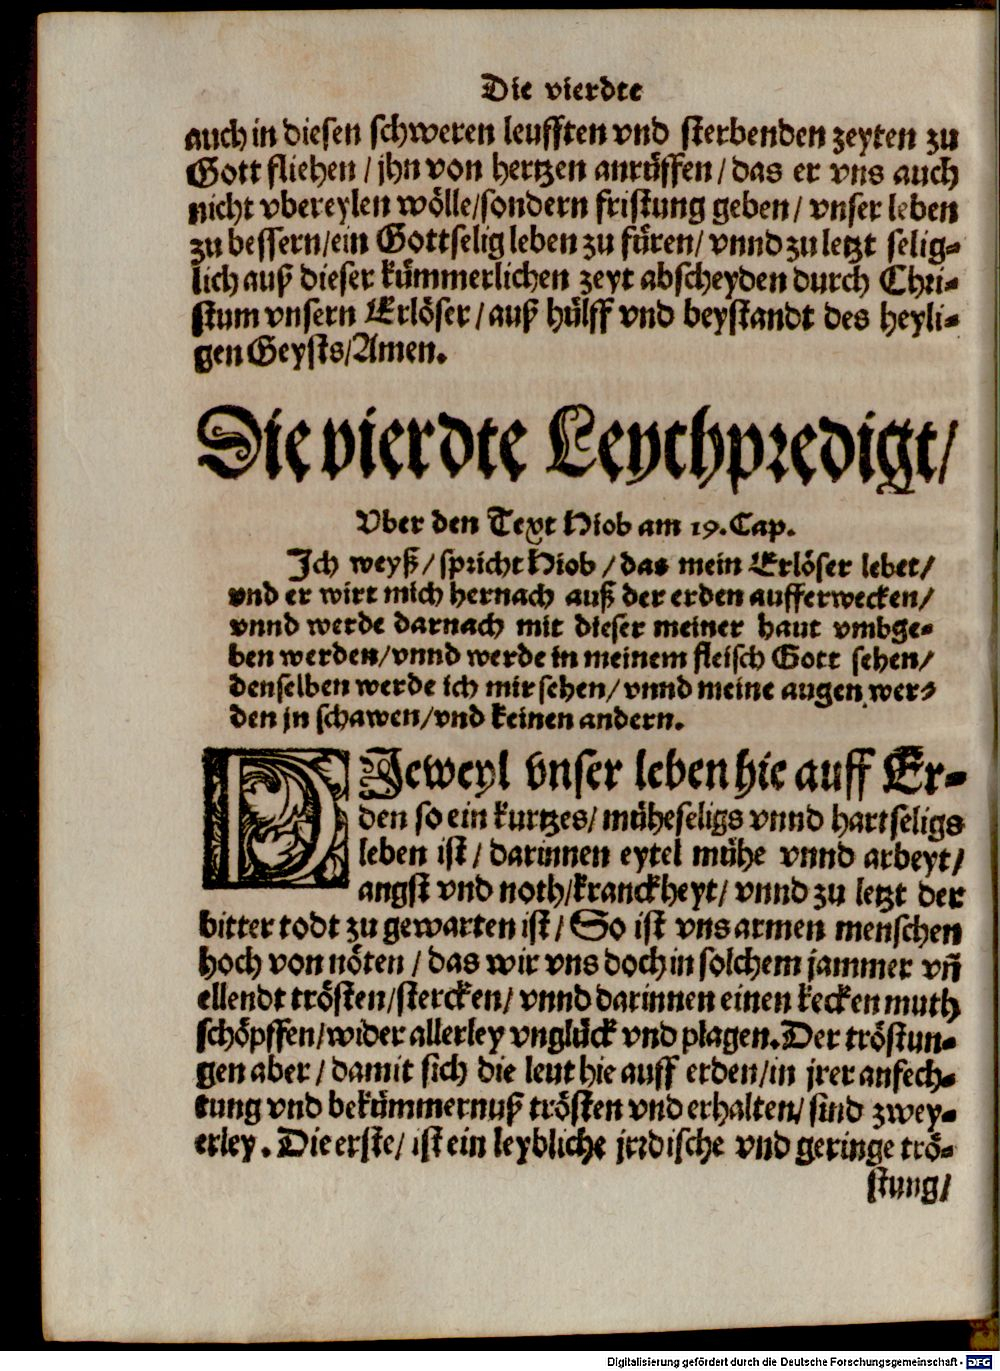 Die vierdte
auch in diesen schweren leufften vnd sterbenden zeyten zu
Gott fliehen / jhn von hertzen anrüffen / das er vns auch
nicht vbereylen wölle/sondern fristung geben/ vnser leben
zu bessern/ein Gottselig leben zu füren/ vnnd zu letzt selig-
lich auß dieser kümmerlichen zeyt abscheyden durch Chri-
stum vnsern Erlöser / auß hülff vnd beystandt des heyli-
gen Geysts/Amen.
Die vierdte Leychpredigt/
Vber den Text Hiob am 19. Cap.
Ich weyß / spricht Hiob / das mein Erlöser lebet/
vnd er wirt mich hernach auß der erden aufferwecken/
vnnd werde darnach mit dieser meiner haut vmbge-
ben werden/vnnd werde in meinem fleisch Gott sehen/
denselben werde ich mir sehen/ vnnd meine augen wer-
den jn schawen/vnd keinen andern.
DJeweyl vnser leben hie auff Er-
den so ein kurtzes/ müheseligs vnnd hartseligs
leben ist / darinnen eytel mühe vnnd arbeyt/
angst vnd noth/kranckheyt/ vnnd zu letzt der
bitter todt zu gewarten ist / So ist vns armen menschen
hoch von nöten / das wir vns doch in solchem jammer vñ
ellendt trösten/stercken/ vnnd darinnen einen kecken muth
schöpffen/wider allerley vnglück vnd plagen. Der tröstun-
gen aber / damit sich die leut hie auff erden/in jrer anfech-
tung vnd bekümmernuß trösten vnd erhalten/ sind zwey-
erley. Die erste/ ist ein leybliche jrdische vnd geringe trö-
stung/
Digitalisierung gefördert durch die Deutsche Forschungsgemeinschaft - DFG